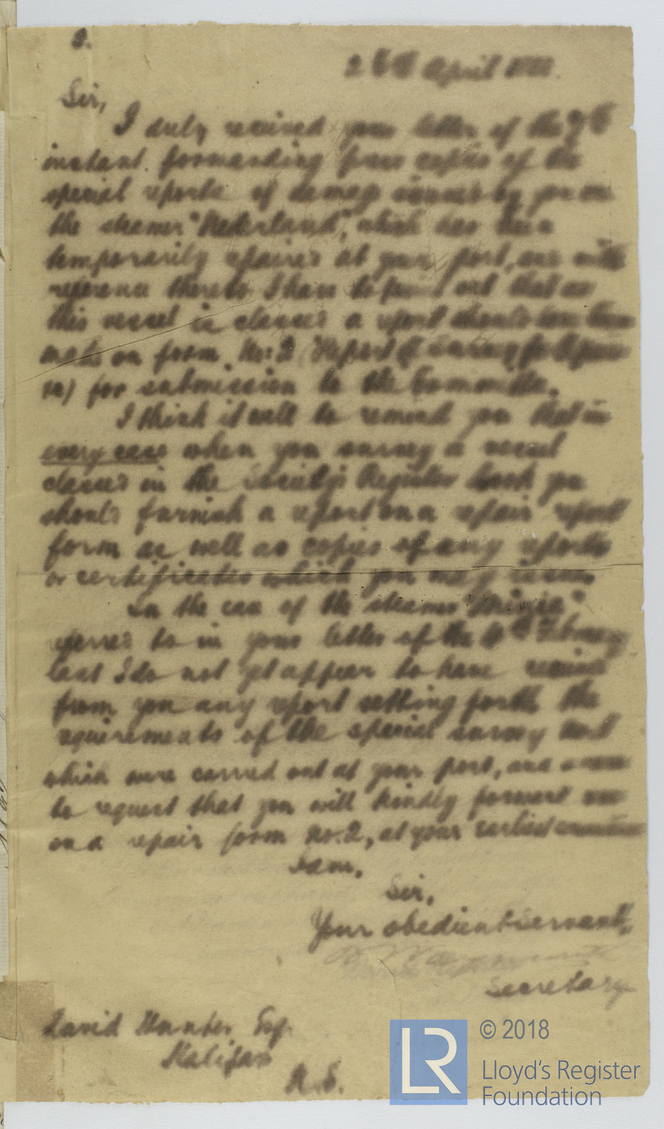 April
Sir,
I duly received your letter of the 9th
instant forwarding copies of the
special reports of damage issued by you on
the steamer "Nederland", which has been
temporarily repaired at your port, and with
reference thereto I have to point out that as
this vessel is classed a report should have been
made on form No. 2 (Report of Survey for Repairs
&c) for submission to the Committee.
I think it well to remind you that in
every case when you survey a vessel
classed in the Society's Register book you
should furnish a report on a repair report
form as well as copies of any reports
or certificates which you may issue.
In the case of the steamer
referred to in your letter of the February
last I do not yet appear to have received
from you any report setting forth the
requirements of the special survey
which were carried out at your port, and
to request that you will kindly forward
on a repair form No. 2, at your earliest convenience
I am,
Sir,
Your obedient Servant,
Secretary
David Hunter Esq.
Halifax
N.S.
LR
© 2018
Lloyd's Register
Foundation